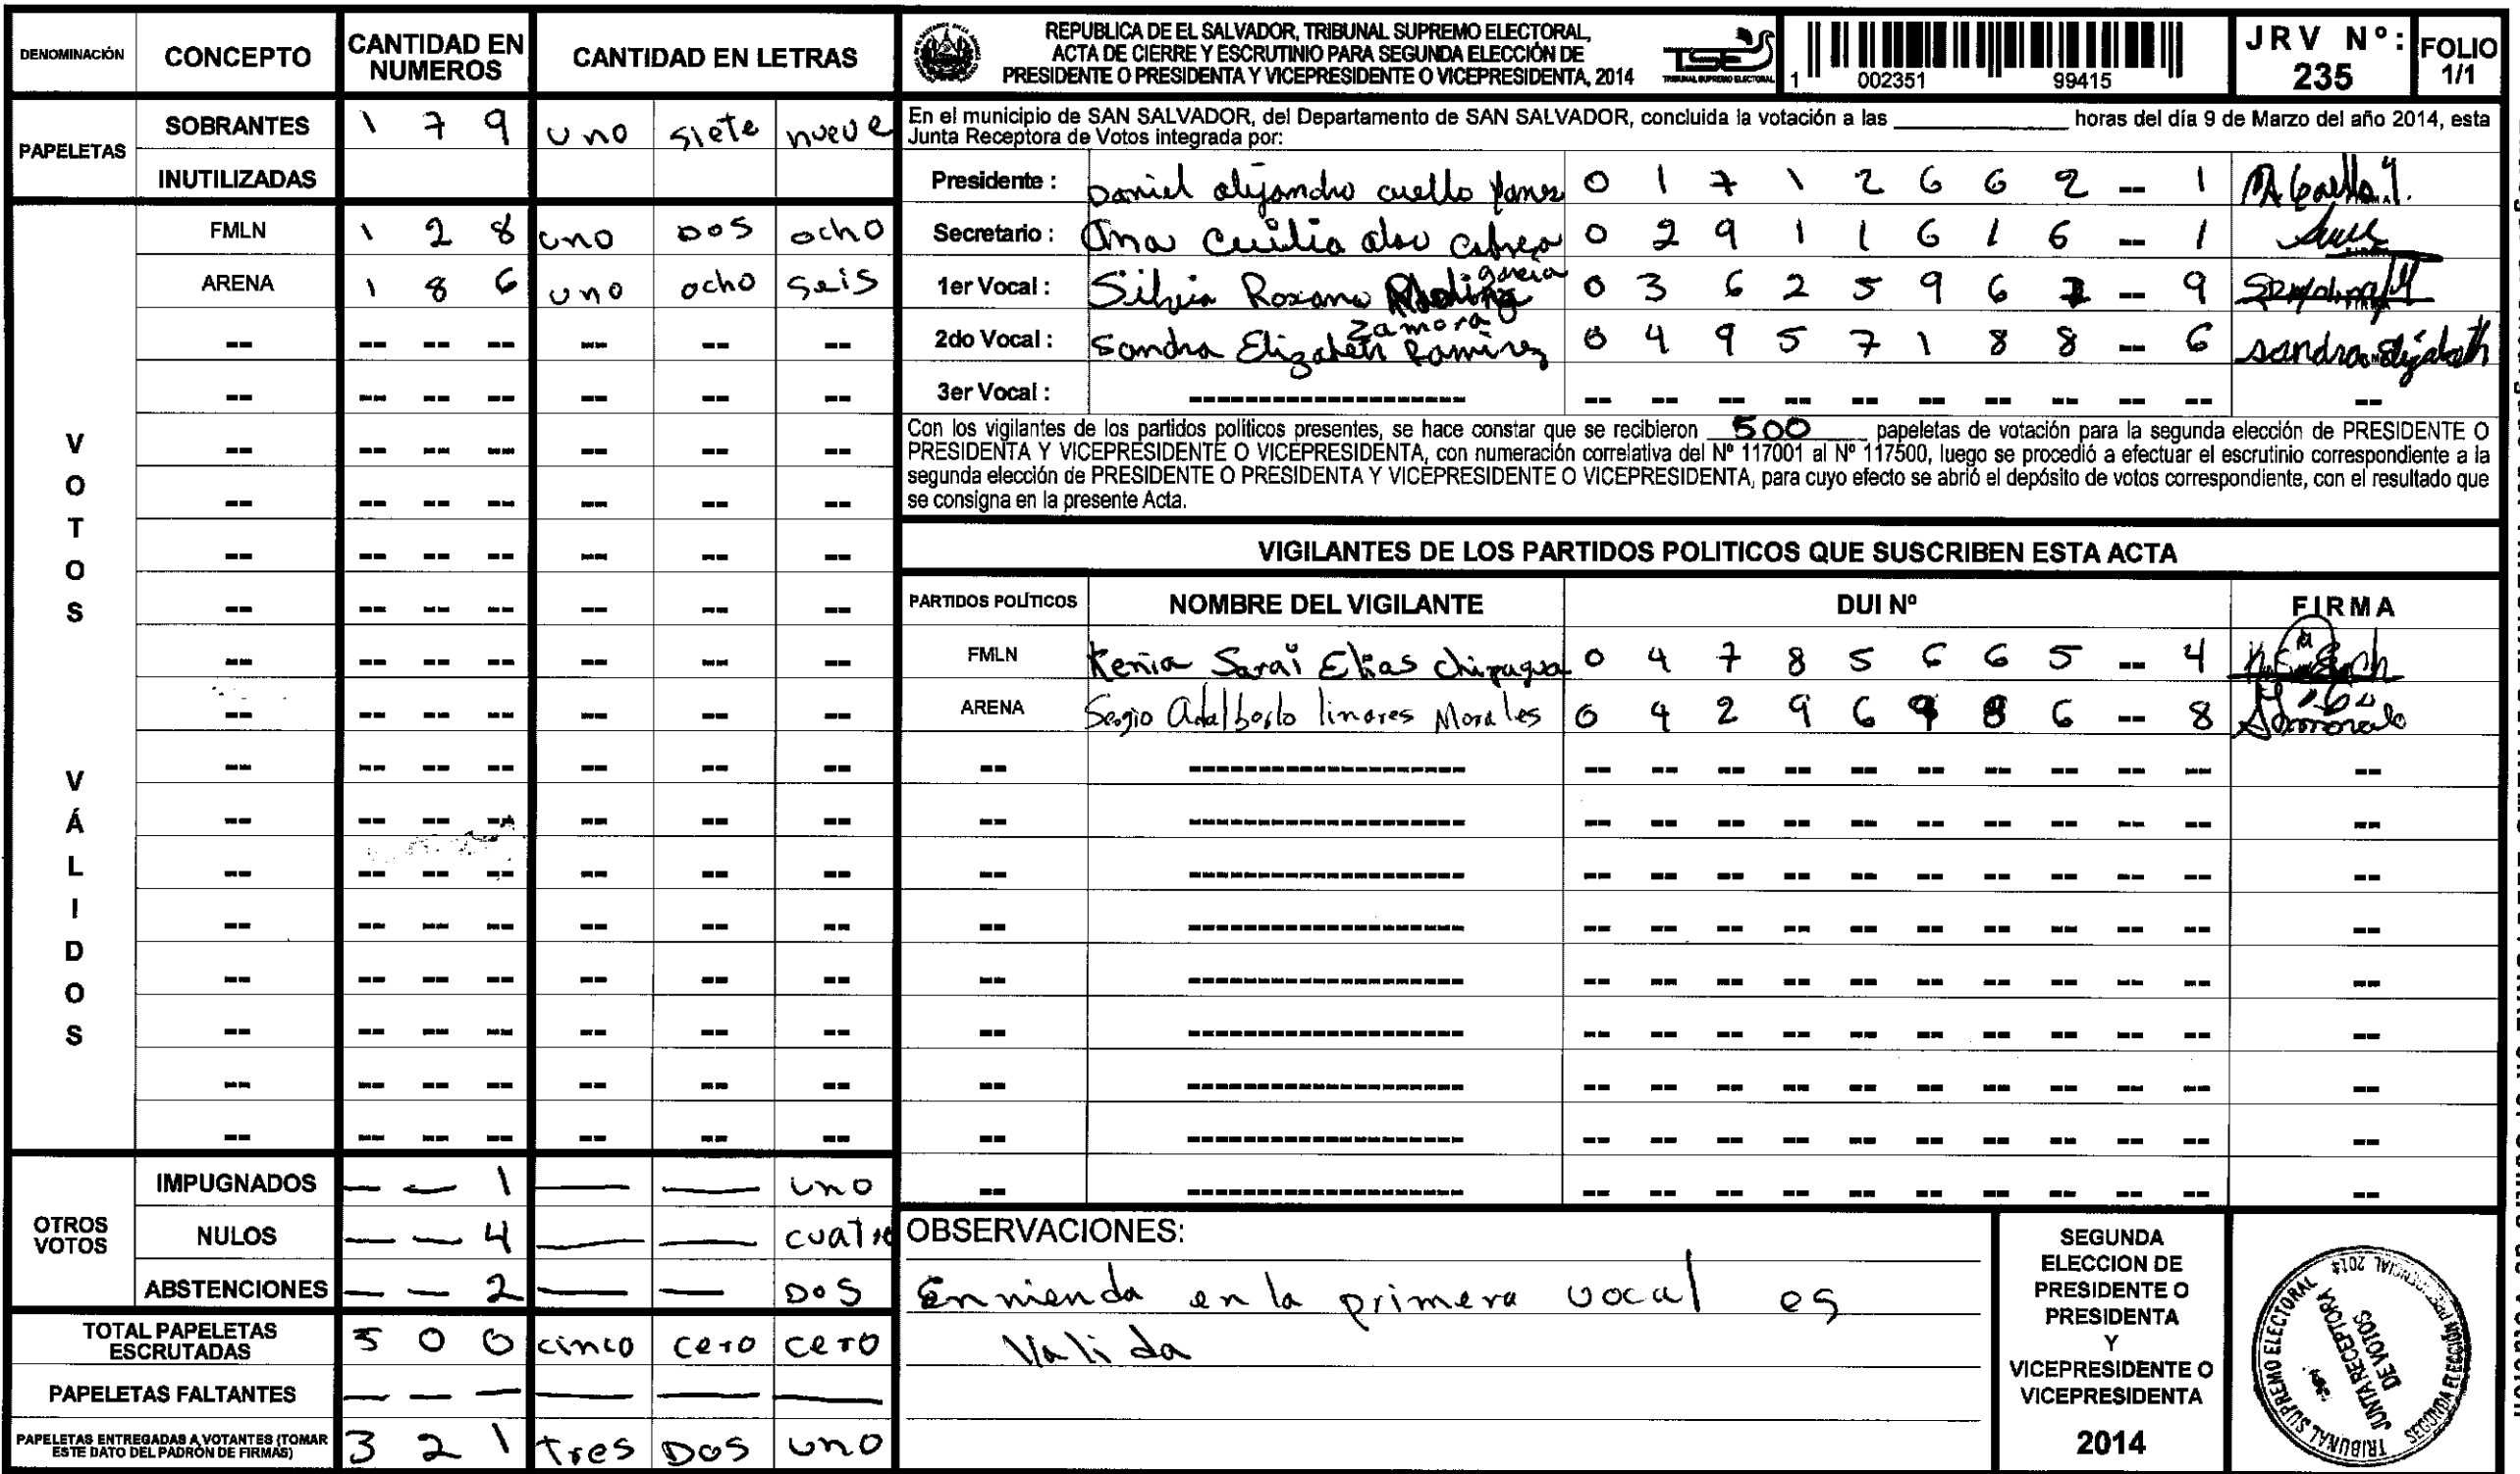 DENOMINACIÓN CONCEPTO CANTIDAD EN NUMEROS CANTIDAD EN LETRAS
PAPELETAS
SOBRANTES 1 7 9 uno siete nueve
INUTILIZADAS
VOTOS VÁLIDOS
FMLN 1 2 8 uno DOS ocho
ARENA 1 8 6 uno ocho seis
OTROS VOTOS
IMPUGNADOS — — 1 — — uno
NULOS — — 4 — — cuatro
ABSTENCIONES — — 2 — — DOS
TOTAL PAPELETAS ESCRUTADAS 5 0 0 cinco cero cero
PAPELETAS FALTANTES — — — — — —
PAPELETAS ENTREGADAS A VOTANTES (TOMAR ESTE DATO DEL PADRÓN DE FIRMAS) 3 2 1 tres DOS uno
REPUBLICA DE EL SALVADOR, TRIBUNAL SUPREMO ELECTORAL,
ACTA DE CIERRE Y ESCRUTINIO PARA SEGUNDA ELECCIÓN DE
PRESIDENTE O PRESIDENTA Y VICEPRESIDENTE O VICEPRESIDENTA, 2014
TSE
TRIBUNAL SUPREMO ELECTORAL
1 002351 99415
JRV Nº: 235
FOLIO 1/1
En el municipio de SAN SALVADOR, del Departamento de SAN SALVADOR, concluida la votación a las ________ horas del día 9 de Marzo del año 2014, esta
Junta Receptora de Votos integrada por:
Presidente : Daniel alejandro cuello 0 1 7 1 2 6 6 2 -- 1
Secretario : Ana 0 2 9 1 1 6 1 6 -- 1
1er Vocal : Silvia Roxana Molina garcia 0 3 6 2 5 9 6 -- 9
2do Vocal : Sandra Elizabeth Zamora Ramirez 0 4 9 5 7 1 8 8 -- 6 sandra Elizabeth
3er Vocal :
Con los vigilantes de los partidos políticos presentes, se hace constar que se recibieron 500 papeletas de votación para la segunda elección de PRESIDENTE O
PRESIDENTA Y VICEPRESIDENTE O VICEPRESIDENTA, con numeración correlativa del Nº 117001 al Nº 117500, luego se procedió a efectuar el escrutinio correspondiente a la
segunda elección de PRESIDENTE O PRESIDENTA Y VICEPRESIDENTE O VICEPRESIDENTA, para cuyo efecto se abrió el depósito de votos correspondiente, con el resultado que
se consigna en la presente Acta.
VIGILANTES DE LOS PARTIDOS POLITICOS QUE SUSCRIBEN ESTA ACTA
PARTIDOS POLÍTICOS NOMBRE DEL VIGILANTE DUI Nº FIRMA
FMLN Kenia Sarai Elias 0 4 7 8 5 6 6 5 -- 4
ARENA Sergio Adalberto linares Morales 0 4 2 9 6 9 8 6 -- 8
OBSERVACIONES:
Enmienda en la primera vocal es
Valida
SEGUNDA
ELECCION DE
PRESIDENTE O
PRESIDENTA
Y
VICEPRESIDENTE O
VICEPRESIDENTA
2014
TRIBUNAL SUPREMO ELECTORAL 2014
JUNTA RECEPTORA
DE VOTOS